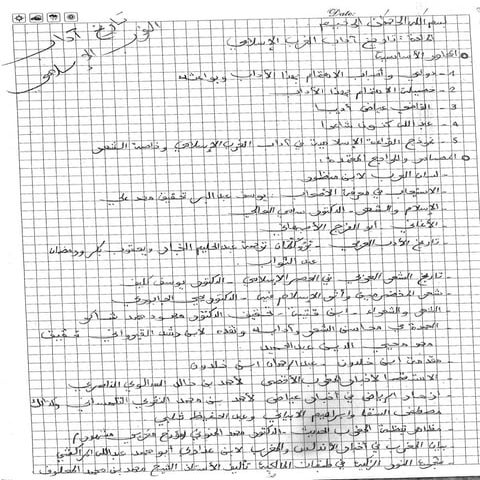 تاريخ آداب
الغرب الإسلامي
Date:
بسم الله الرحمان الرحيم
المادة: تاريخ آداب الغرب الإسلامي
المحاور الأساسية
1 - دواعي وأسباب الاهتمام بهذا الأداب وبواعثه
2 - حصيلة الاهتمام بهذا الأداب
3 - القاضي عياض أديبا
4 - عبد الله كنون شاعرا
5 - نموذج القراءة الإسلامية في آداب الغرب الإسلامي وخاصة الشعر
المصادر والمراجع المعتمدة:
- لسان العرب لابن منظور
- الاستيعاب في معرفة الأصحاب - يوسف عبد البر تحقيق محمد علي
- الإسلام والشعر - الدكتور سامي العاني
- الأغاني - أبو الفرج الأصبهاني
- تاريخ الأدب العربي - بروكلمان ترجمة عبد الحليم النجار ويعقوب بكر ورمضان
عبد التواب
- تاريخ الشعر العربي في العصر الإسلامي - الدكتور يوسف خليف
- شعر المخضرمين وأثر الإسلام فيه - الدكتور يحيى الجبوري
- الشعر والشعراء - ابن قتيبة - تحقيق الدكتور محمود محمد شاكر
- العمدة في محاسن الشعر وآدابه ونقده لابن رشيق القيرواني تحقيق
محمد محيي الدين عبد الحميد
- مقدمة ابن خلدون - عبد الرحمان ابن خلدون
- الاستقصا لأخبار المغرب الأقصى لأحمد بن خالد السلاوي الناصري
- أزهار الرياض في أخبار عياض لأحمد محمد المقري التلمساني
مصطفى السقا وإبراهيم الابياري وعبد الحفيظ شلبي
- مظاهر يقظة المغرب الحديث - الدكتور محمد المنوني
- بيان المغرب في أخبار الأندلس والمغرب لابن عذاري أبو محمد عبد الله المراكشي
- شجرة النور الزكية في طبقات المالكية تأليف الأستاذ الشيخ محمد بن محمد المخلوف